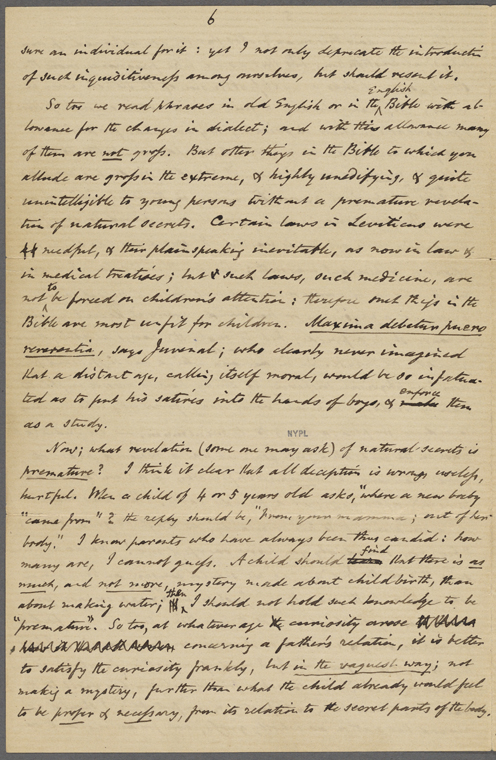 6
sure an individual for it : yet I not only deprecate the introduction
of such inquisitiveness among ourselves, but should resent it.
So too we read phrases in old English or in the English Bible with al-
lowance for the changes in dialect; and with this allowance many
of them are not gross. But other things in the Bible to which you
allude are gross in the extreme, & highly unedifying, & quite
unintelligible to young persons without a premature revela-
tion of natural secrets. Certain laws in Leviticus were
needful, & their plainspeaking inevitable, as now in law &
in medical treatises; but such laws, such medicine, are
not to be forced on children's attention : therefore such things in the
Bible are most unfit for children. Maxima debetur puero
reverentia, says Juvenal; who clearly never imagined
that a distant age, calling itself moral, would be so infatua-
ted as to put his satires into the hands of boys, & enforce them
as a study.
NYPL
Now; what revelation (some one may ask) of natural secrets is
premature? I think it clear that all deception is wrong, useless,
hurtful. When a child of 4 or 5 years old asks, "where a new baby
"came from"? the reply should be, "from your mamma; out of her
body." I know parents who have always been thus candid : how
many are, I cannot guess. A child should find that there is as
much, and not more, mystery made about childbirth, than
about making water; then I should not hold such knowledge to be
"premature". So too, at whatever age the curiosity arose
concerning a father's relation, it is better
to satisfy the curiosity frankly, but in the vaguest way; not
making a mystery, further than what the child already would feel
to be proper & necessary, from its relation to the secret parts of the body.